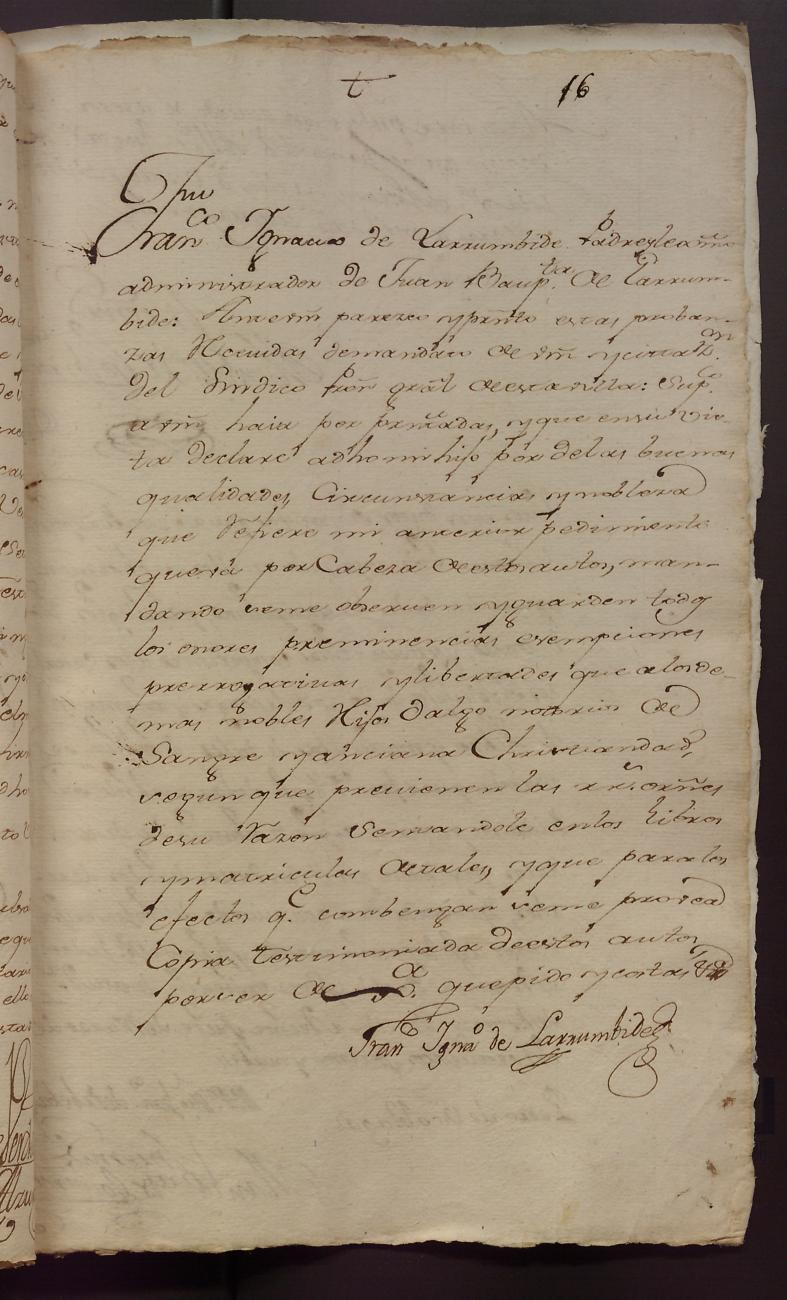 t 16
Franco Ygnacio de Larrumbide Padre y lexmo
administrador de Juan Baupta de Larrum-
bide: Ante vm parezco y pnto estas proban-
zas Receuidas demandato de vm y citazn
del Sindico Pror gral de esta villa: Supco
a vm haia por prntadas, y que en su vis-
ta declare a dho mi hijo por delas buenas
qualidades, Circunstancias y nobleza
que Refiere mi anterior pedimento
que va por Cabeza de estos autos, man-
dando se me obseruen y guarden todos
los onores preminencias esempciones
prerrogatiuas y libertades que alosde-
mas nobles Hijos dalgo notorios de
Sangre y anciana Christiandad,
segun que preuienen las rrs. ordns
de su Razon Sentandole en los Libros
y matriculas de tales, y que para los
efectos q. combengan se me provea
Copia testimoniada de estos autos
por ser de Jª. que pido y costas
Franco Ygno de Larrumbide